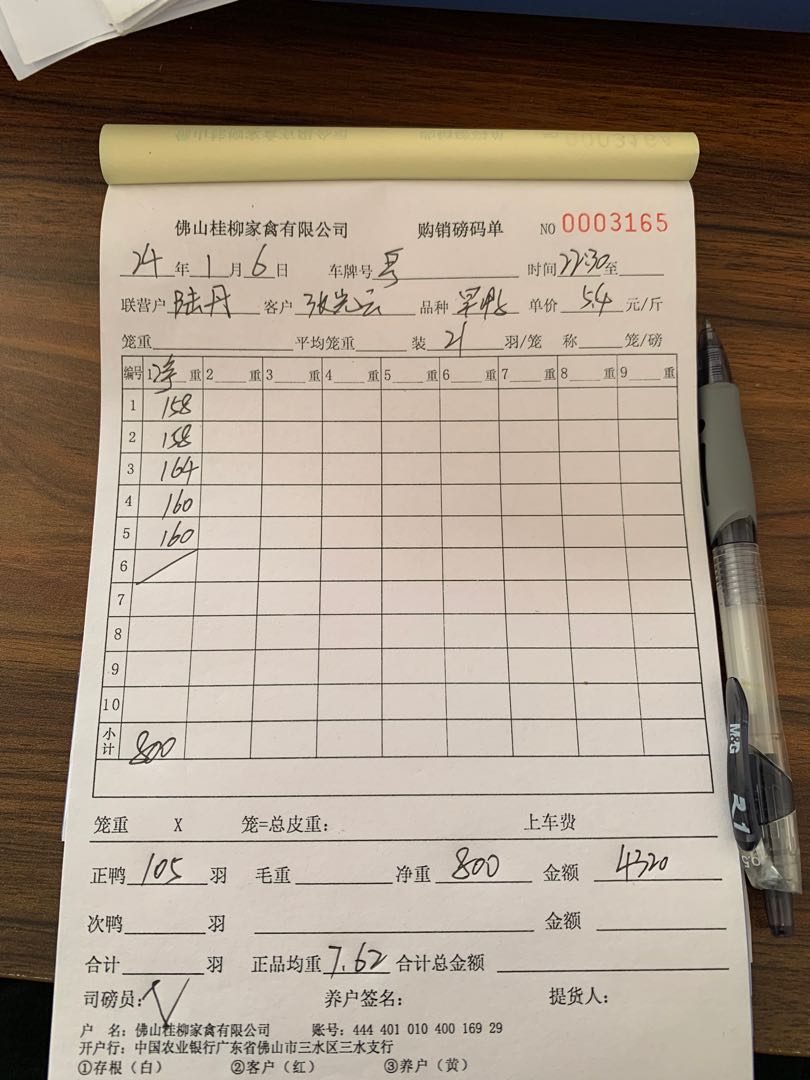 佛山桂柳家禽有限公司 购销磅码单 NO 0003165
24 年 1 月 6 日 车牌号 时间 22:30 至
联营户 陆丹 客户 张光云 品种 单价 5.4 元/斤
笼重 平均笼重 装 21 羽/笼 称 笼/磅
编号 1 净 重 2 重 3 重 4 重 5 重 6 重 7 重 8 重 9 重
1 158
2 158
3 164
4 160
5 160
6
7
8
9
10
小计 800
笼重 X 笼=总皮重： 上车费
正鸭 105 羽 毛重 净重 800 金额 4320
次鸭 羽 金额
合计 羽 正品均重 7.62 合计总金额
司磅员： 养户签名： 提货人：
户 名：佛山桂柳家禽有限公司 账号：444 401 010 400 169 29
开户行：中国农业银行广东省佛山市三水区三水支行
①存根（白） ②客户（红） ③养户（黄）
M&G
R1